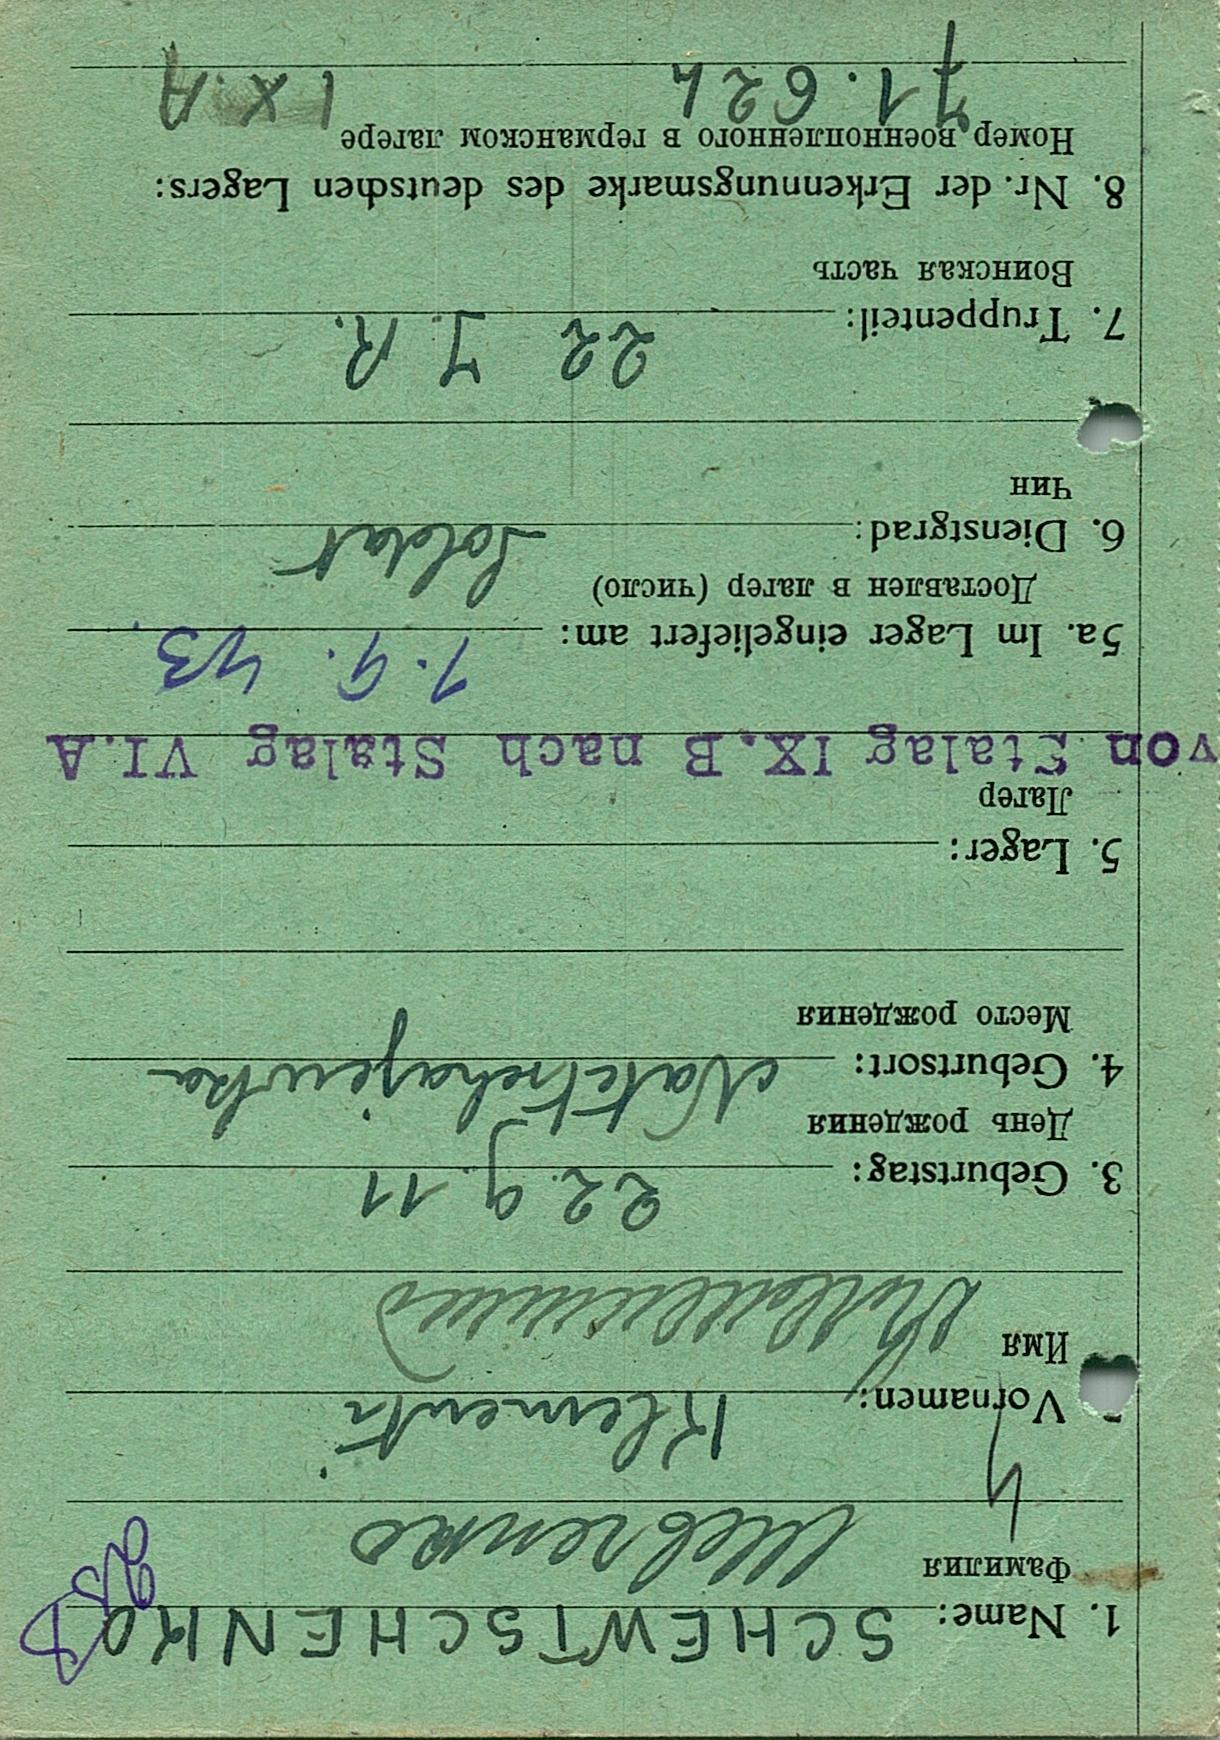 1. Name: SCHEWTSCHENKO
Фамилия Шевченко
Vornamen: Klementi
Имя
3. Geburtstag: 22.9.11
День рождения
4. Geburtsort:
Место рождения
5. Lager:
Лагер
von Stalag IX.B nach Stalag VI.A
5a. Im Lager eingeliefert am: 1.9.43.
Доставлен в лагер (число)
6. Dienstgrad: Soldat
Чин
7. Truppenteil: 22 J. R.
Воинская часть
8. Nr. der Erkennungsmarke des deutschen Lagers:
Номер военнопленного в германском лагере
71.624 IX A